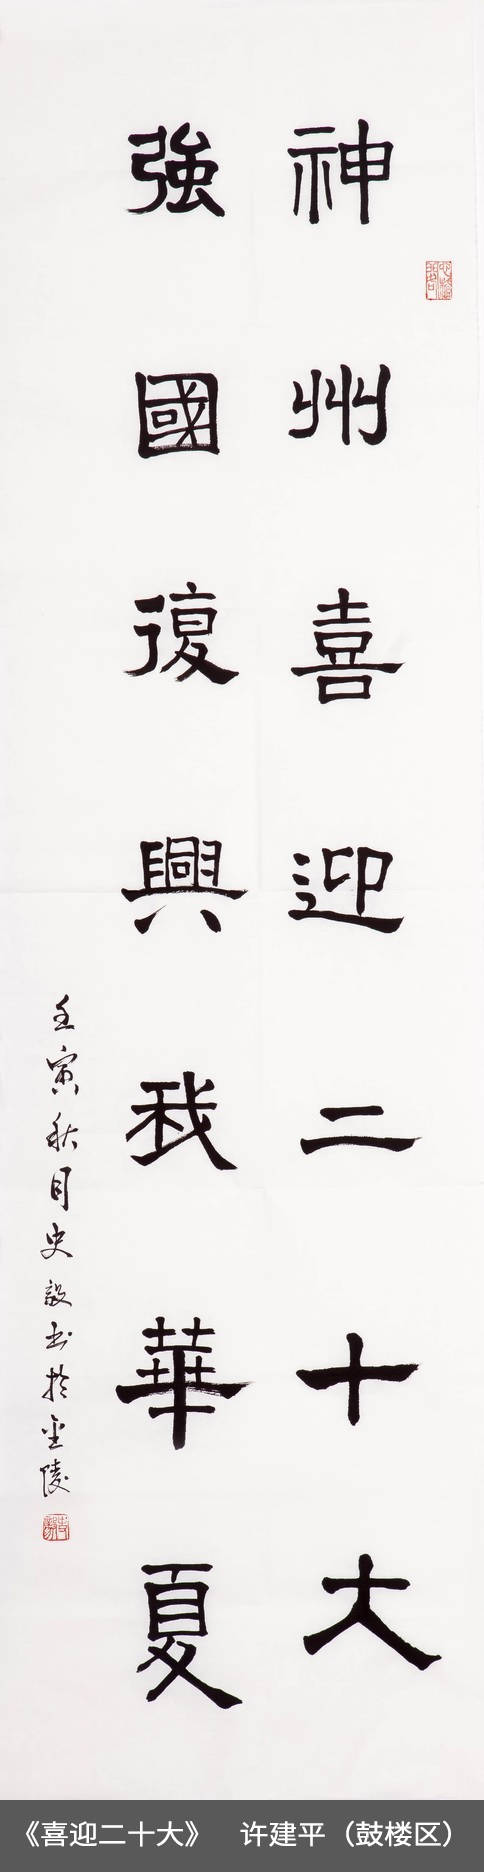 神州喜迎二十大
強國復興我華夏
壬寅秋月史毅书於金陵
《喜迎二十大》 许建平（鼓楼区）